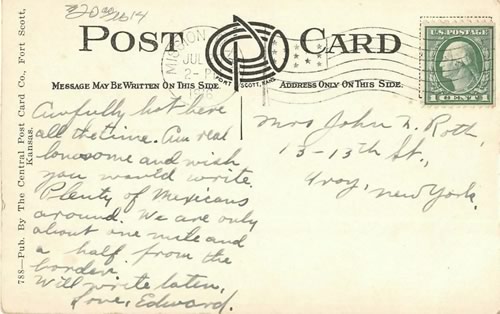 POST CARD
MISSION
JUL
2-P
FORT SCOTT, KANS.
U.S. POSTAGE
1 CENT 1
MESSAGE MAY BE WRITTEN ON THIS SIDE
ADDRESS ONLY ON THIS SIDE.
788—Pub. By The Central Post Card Co., Fort Scott, Kansas.
Awfully hot here
all the time. Am real
lonesome and wish
you would write.
Plenty of Mexicans
around. We are only
about one mile and
a half from the
border.
Will write later,
Love, Edward.
Mrs John N. Roth,
13-13th St.,
Troy, New York.